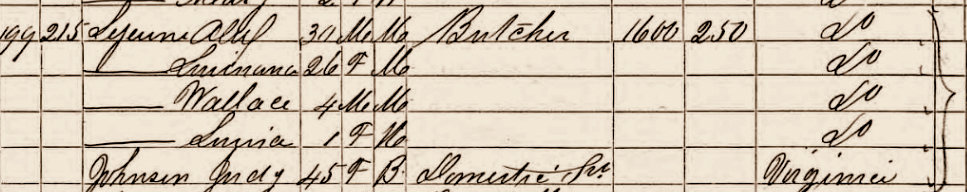 199 215 Lejeune 30 M M Butcher 1600 250 Do
26 F M Do
Wallace 4 M M Do
1 F M Do
Johnson Judy 45 F B Domestic Sr. Virginia